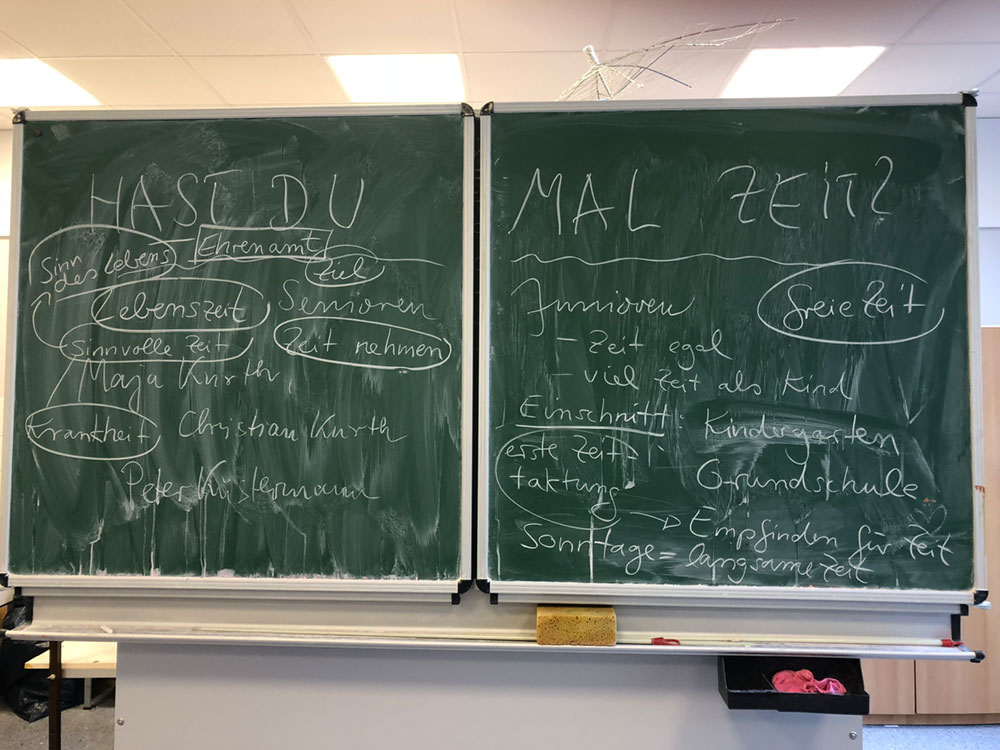 HAST DU MAL ZEIT?
Ehrenamt
Sinn
des Lebens
Ziel
Lebenszeit
Senioren
sinnvolle Zeit
Zeit nehmen
Maja Kurth
Krankheit
Christian Kurth
Peter Küstermann
Junioren
freie Zeit
- Zeit egal
- viel Zeit als Kind
Einschnitt: Kindergarten
erste Zeit-
taktung
Grundschule
→ Empfinden für Zeit
Sonntage = langsame Zeit